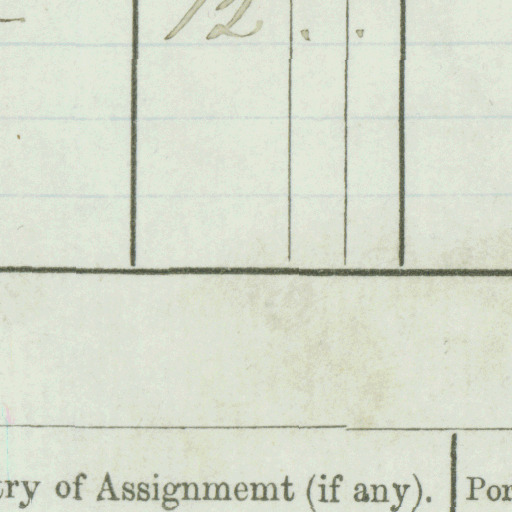 12 . .
try of Assignmemt (if any). Por